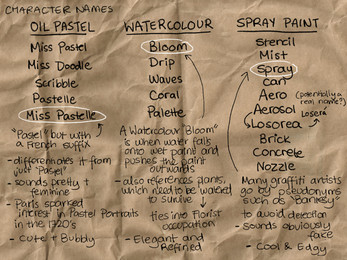 CHARACTER NAMES
OIL PASTEL
Miss Pastel
Miss Doodle
Scribble
Pastelle
Miss Pastelle
"Pastel" but with
a French suffix
- differentiates it from
just "Pastel"
- sounds pretty +
feminine
- Paris sparked
interest in Pastel Portraits
in the 1720's
- Cute + Bubbly
WATERCOLOUR
Bloom
Drip
Waves
Coral
Palette
A Watercolour "Bloom"
is when water falls
onto wet paint and
pushes the paint
outwards
- also references plants,
which need to be watered
to survive
ties into Florist
occupation
- Elegant and
Refined
SPRAY PAINT
Stencil
Mist
Spray
Can
Aero (potentially a
real name?)
Aerosol Losera
Losorea
Brick
Concrete
Nozzle
Many graffiti artists
go by pseudonyms
such as "Banksy"
to avoid detection
- sounds obviously
fake
- Cool & Edgy